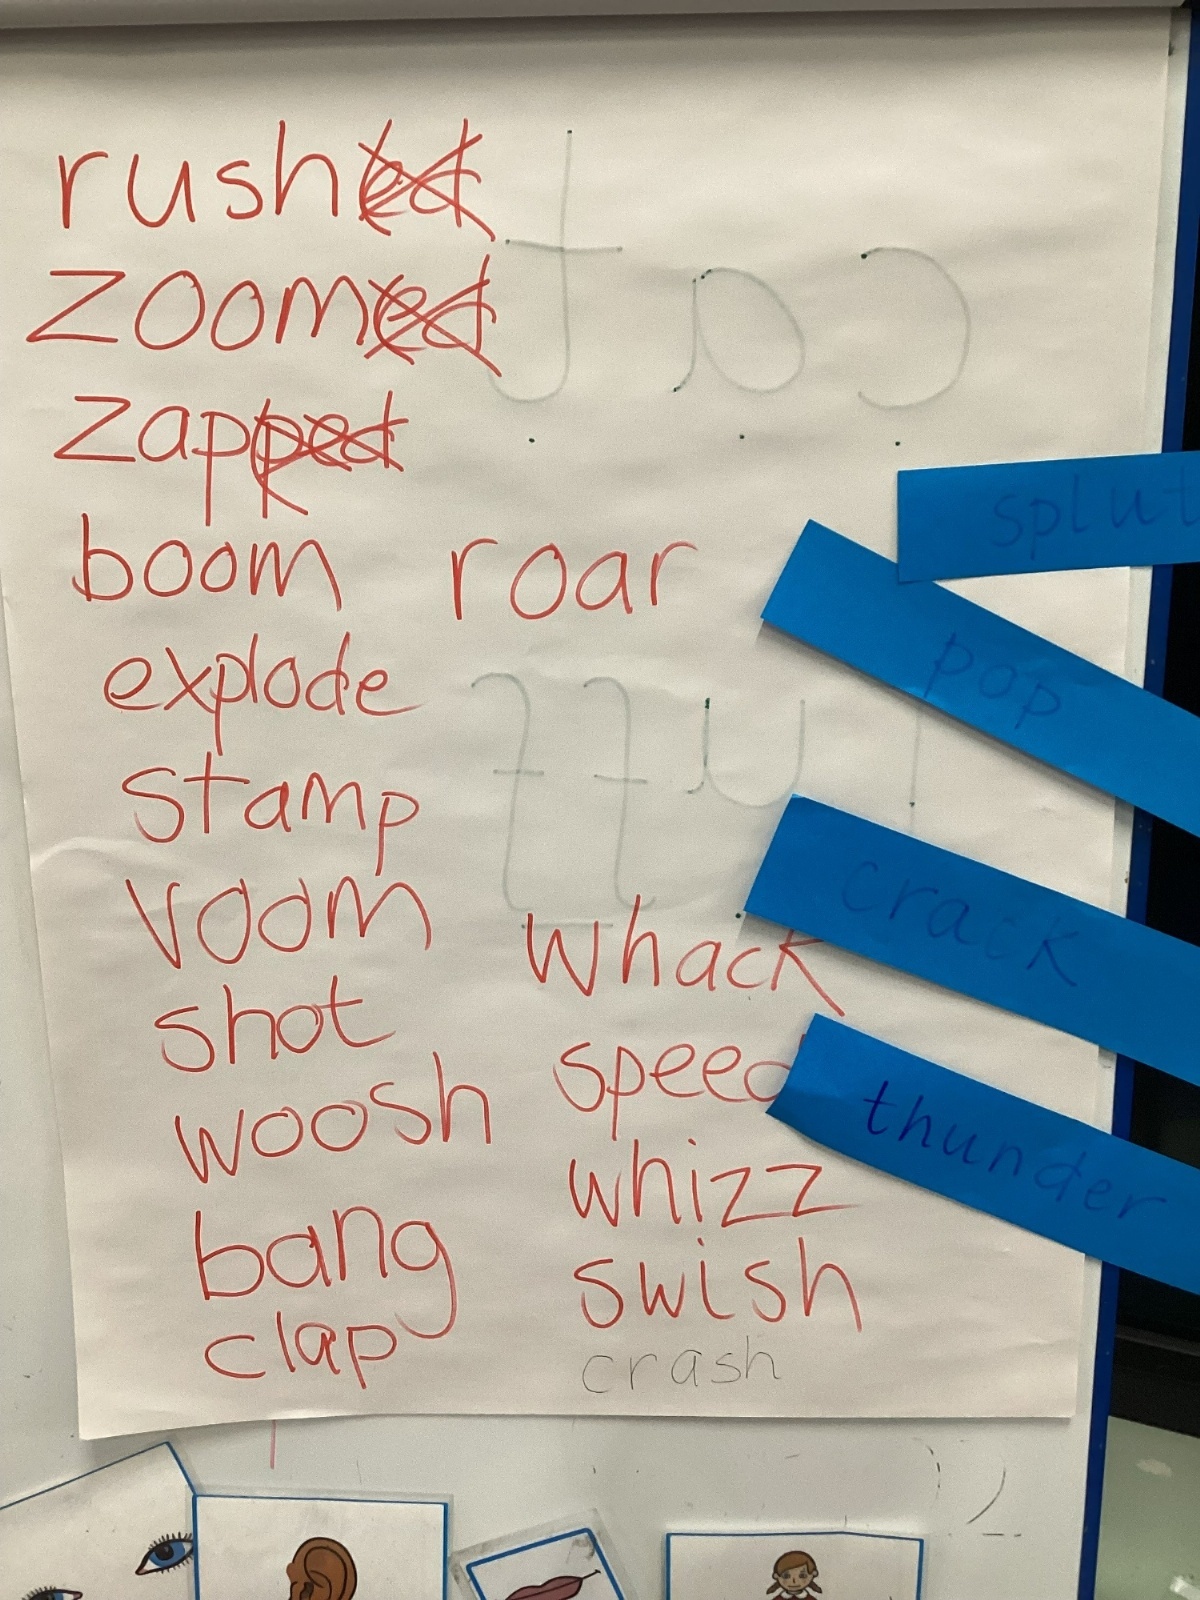 rush
zoom
zap
boom roar
explode
stamp
voom
whack
shot
speed
woosh
whizz
bang
swish
clap
crash
splut
pop
crack
thunder